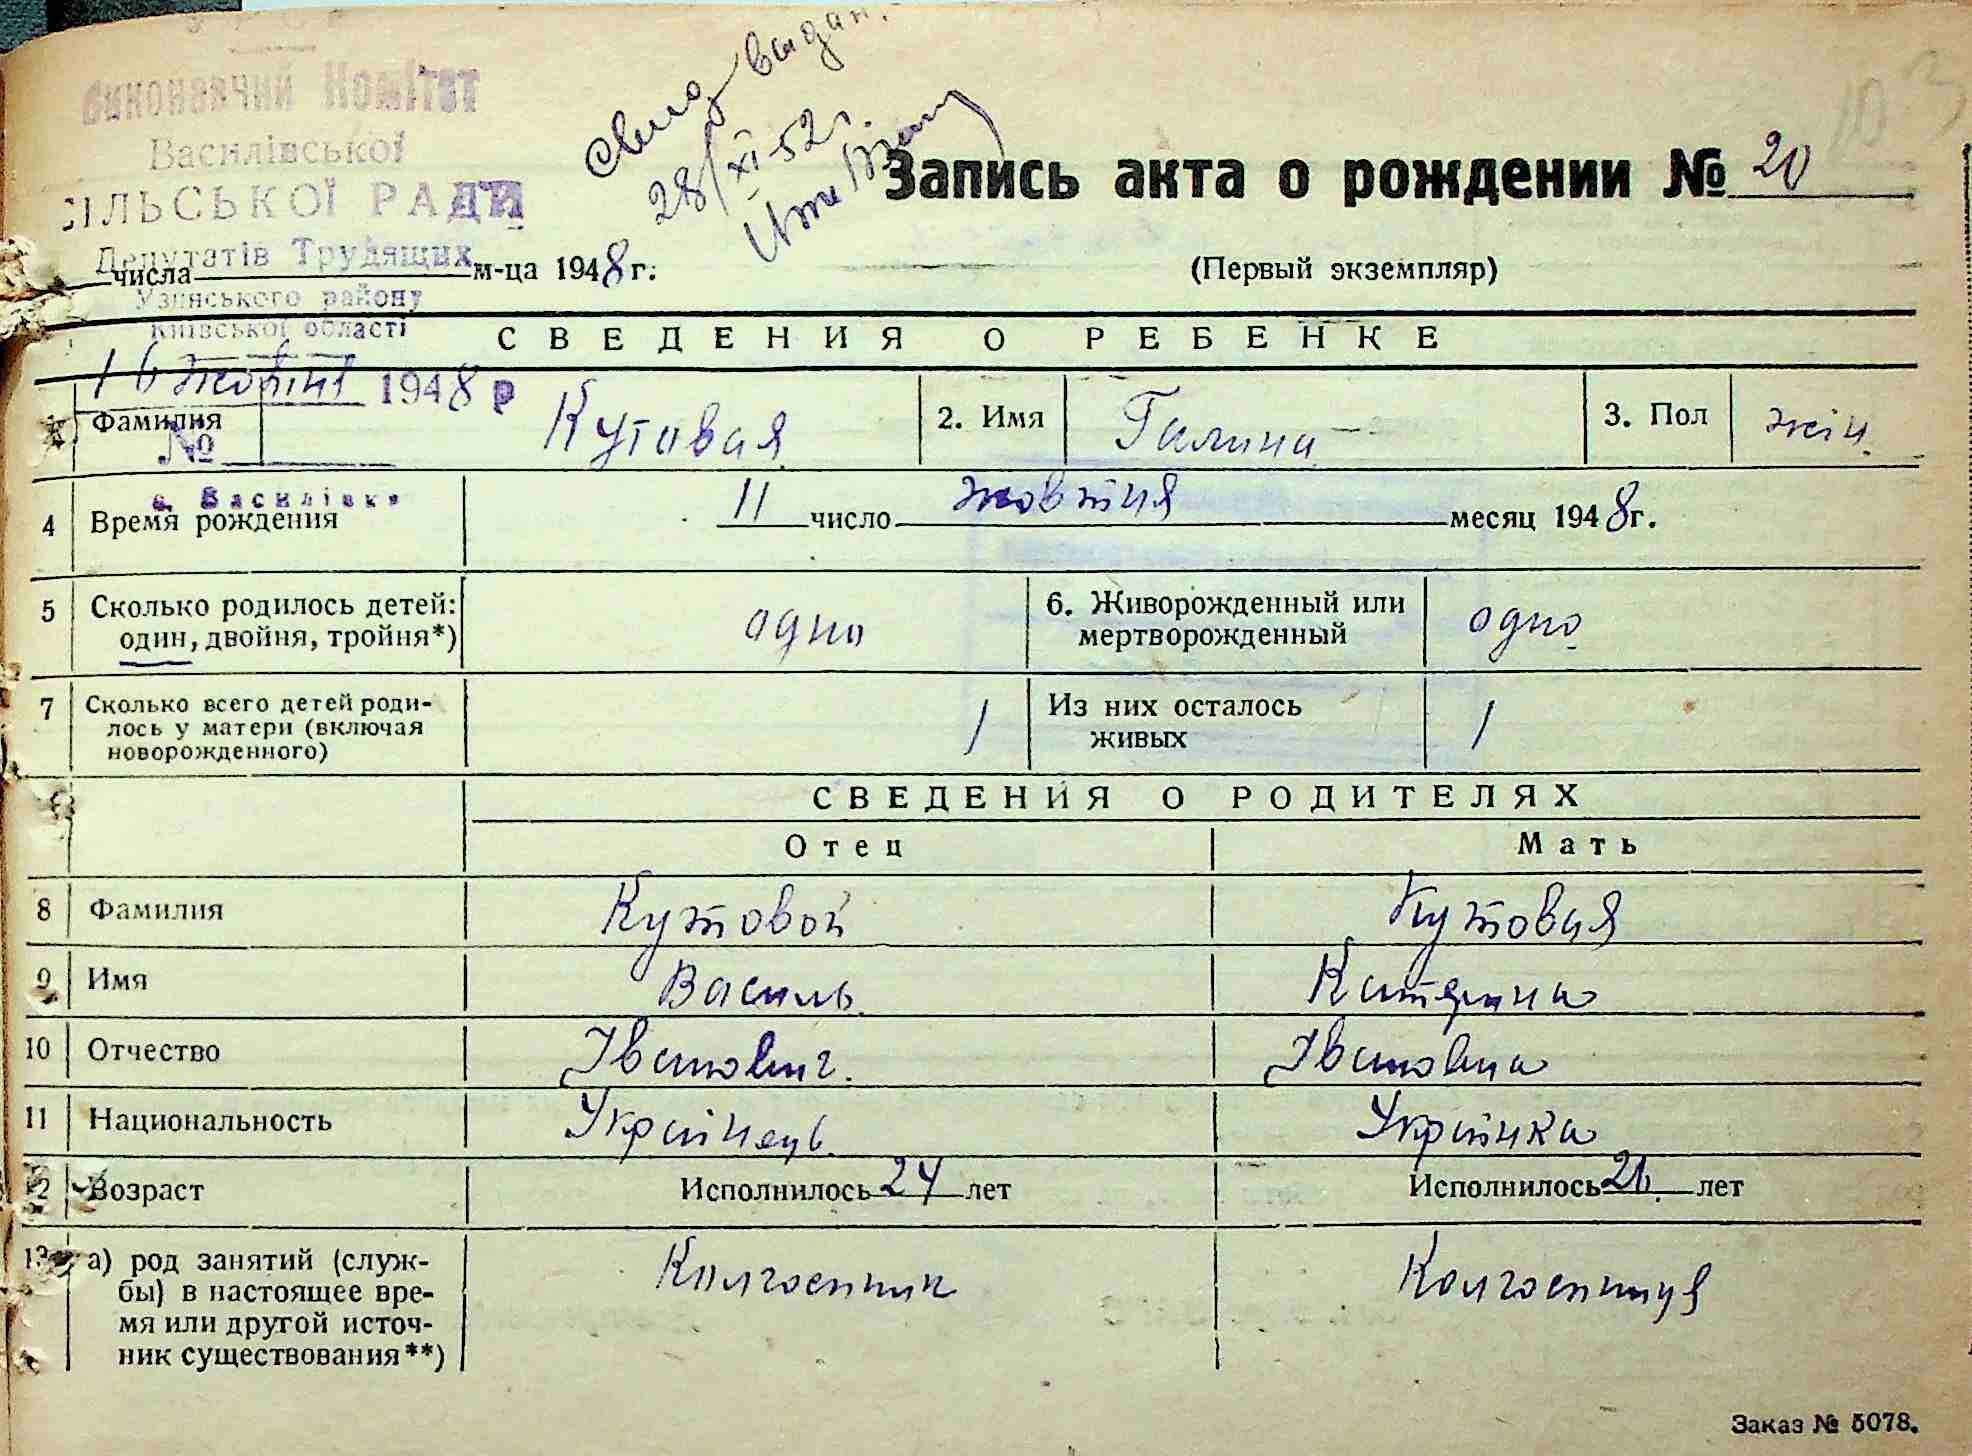 Виконавчий Комітет
Василівської
СІЛЬСЬКОЇ РАДИ
Депутатів Трудящих
Узинського району
Київської області
16 жовтня 1948 р
№
с. Василівка
Свид выдан.
28/XI-52г.
Запись акта о рождении № 20
числа м-ца 1948 г.
(Первый экземпляр)
СВЕДЕНИЯ О РЕБЕНКЕ
Фамилия Кутовая 2. Имя Галина 3. Пол жін.
4 Время рождения 11 число жовтня месяц 1948 г.
5 Сколько родилось детей: один, двойня, тройня*) одно 6. Живорожденный или мертворожденный одно
7 Сколько всего детей родилось у матери (включая новорожденного) 1 Из них осталось живых 1
СВЕДЕНИЯ О РОДИТЕЛЯХ
Отец Мать
8 Фамилия Кутовой Кутовая
9 Имя Василь Катерина
10 Отчество Іванович. Івановна
11 Национальность Українець Українка
12 Возраст Исполнилось 24 лет Исполнилось 26 лет
13 а) род занятий (служ-
бы) в настоящее вре-
мя или другой источ-
ник существования**)
Колгоспник Колгоспниця
Заказ № 5078.